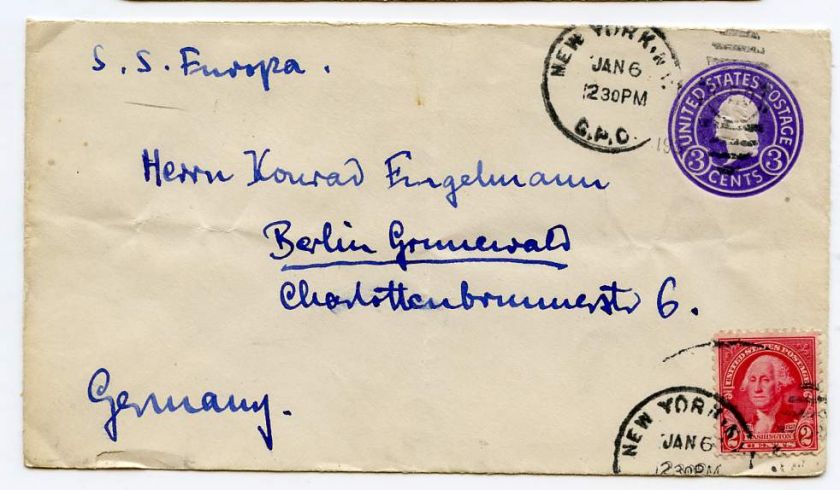 S. S. Europa.
NEW YORK, N.Y.
JAN 6
12 30 PM
G.P.O.
19
UNITED STATES POSTAGE
3 CENTS 3
Herrn Konrad Engelmann
Berlin Grunewald
Charlottenbrunnerstr 6.
Germany.
UNITED STATES POSTAGE
WASHINGTON
2 CENTS 2
NEW YORK, N.
JAN 6
12 30 PM